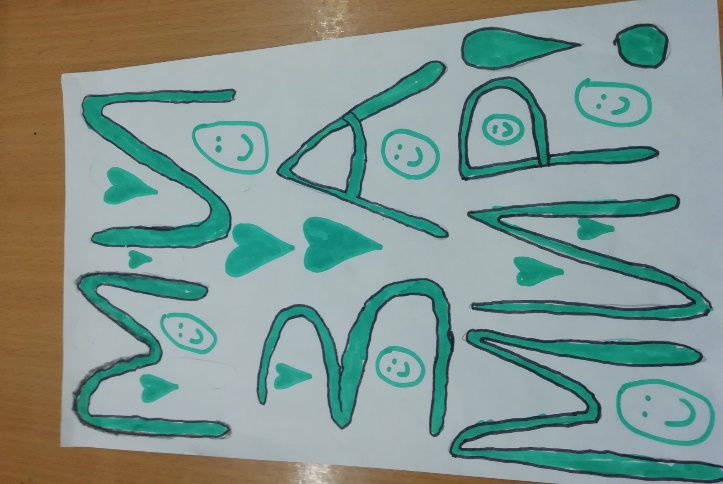 МИ
ЗА
МИР!